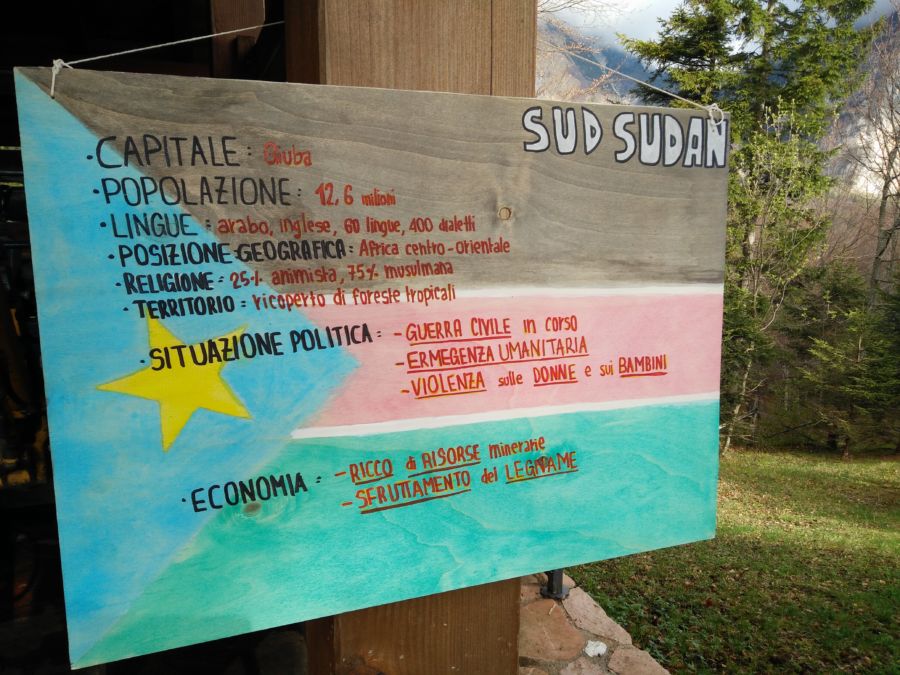 SUD SUDAN
·CAPITALE: Giuba
·POPOLAZIONE: 12,6 milioni
·LINGUE: arabo, inglese, 60 lingue, 400 dialetti
·POSIZIONE GEOGRAFICA: Africa centro-orientale
·RELIGIONE: 25% animista, 75% musulmana
·TERRITORIO: ricoperto di foreste tropicali
·SITUAZIONE POLITICA: -GUERRA CIVILE in corso
-ERMEGENZA UMANITARIA
-VIOLENZA sulle DONNE e sui BAMBINI
·ECONOMIA: -RICCO di RISORSE minerarie
-SFRUTTAMENTO del LEGNAME